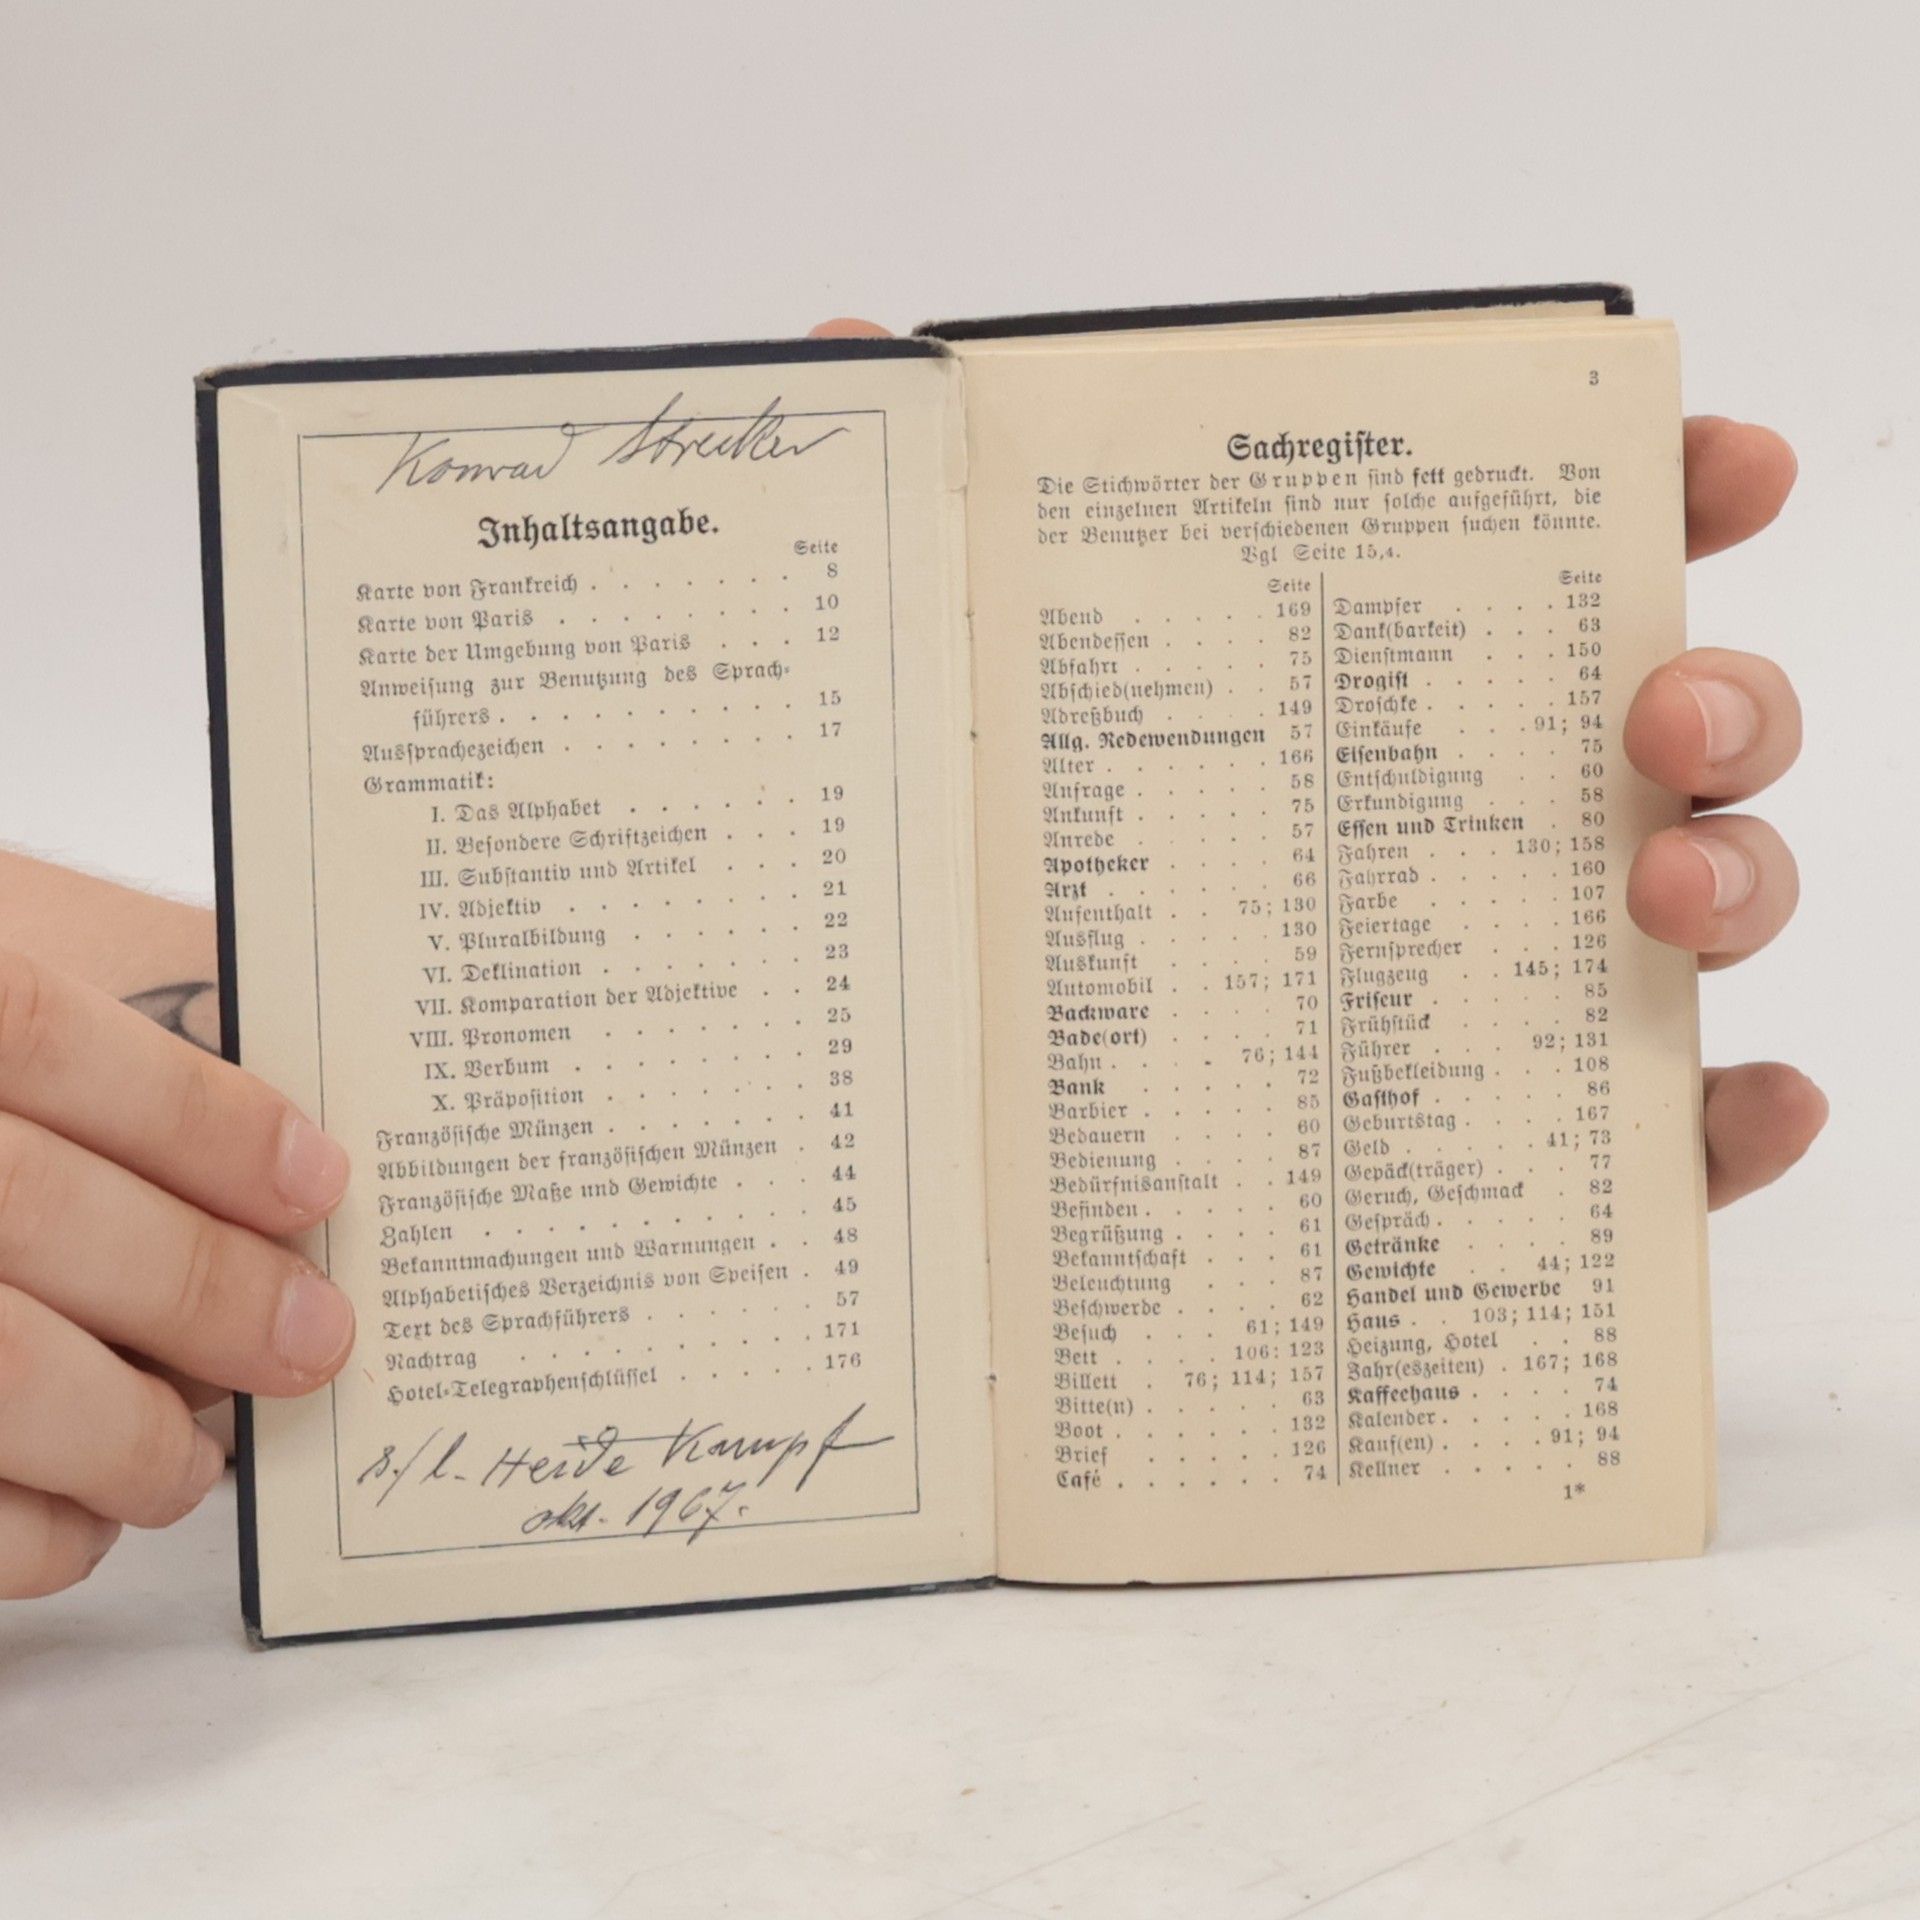 Konrad Strecker
Inhaltsangabe.
Seite
Karte von Frankreich . . . . . . . 8
Karte von Paris . . . . . . . . 10
Karte der Umgebung von Paris . . . 12
Anweisung zur Benutzung des Sprach-
führers . . . . . . . . . . 15
Aussprachezeichen . . . . . . . . 17
Grammatik:
I. Das Alphabet . . . . . . 19
II. Besondere Schriftzeichen . . . 19
III. Substantiv und Artikel . . . 20
IV. Adjektiv . . . . . . . . 21
V. Pluralbildung . . . . . . 22
VI. Deklination . . . . . . . 23
VII. Komparation der Adjektive . . 24
VIII. Pronomen . . . . . . . 25
IX. Verbum . . . . . . . . 29
X. Präposition . . . . . . . 38
Französische Münzen . . . . . . . 41
Abbildungen der französischen Münzen . 42
Französische Maße und Gewichte . . . 44
Zahlen . . . . . . . . . . . 45
Bekanntmachungen und Warnungen . . 48
Alphabetisches Verzeichnis von Speisen . 49
Text des Sprachführers . . . . . . 57
Nachtrag . . . . . . . . . . 171
Hotel-Telegraphenschlüssel . . . . . 176
Heide Kampf
okt. 1967.
3
Sachregister.
Die Stichwörter der Gruppen sind fett gedruckt. Von
den einzelnen Artikeln sind nur solche aufgeführt, die
der Benutzer bei verschiedenen Gruppen suchen könnte.
Vgl Seite 15,4.
Seite
Abend . . . . . 169
Abendessen . . . . 82
Abfahrt . . . . . 75
Abschied(nehmen) . . 57
Adreßbuch . . . . 149
Allg. Redewendungen 57
Alter . . . . . . 166
Anfrage . . . . . 58
Ankunft . . . . . 75
Anrede . . . . . 57
Apotheker . . . . 64
Arzt . . . . . . 66
Aufenthalt . . 75; 130
Ausflug . . . . . 130
Auskunft . . . . 59
Automobil . . 157; 171
Backware . . . . 70
Bade(ort) . . . . 71
Bahn . . . . 76; 144
Bank . . . . . 72
Barbier . . . . . 85
Bedauern . . . . 60
Bedienung . . . . 87
Bedürfnisanstalt . . 149
Befinden . . . . . 60
Begrüßung . . . . 61
Bekanntschaft . . . 61
Beleuchtung . . . 87
Beschwerde . . . . 62
Besuch . . . 61; 149
Bett . . . . 106; 123
Billett . 76; 114; 157
Bitte(n) . . . . . 63
Boot . . . . . . 132
Brief . . . . . 126
Café . . . . . . 74
Seite
Dampfer . . . . 132
Dank(barkeit) . . . 63
Dienstmann . . . 150
Drogist . . . . . 64
Droschke . . . . . 157
Einkäufe . . . 91; 94
Eisenbahn . . . . 75
Entschuldigung . . 60
Erkundigung . . . 58
Essen und Trinken . 80
Fahren . . . 130; 158
Fahrrad . . . . . 160
Farbe . . . . . 107
Feiertage . . . . 166
Fernsprecher . . . 126
Flugzeug . . 145; 174
Friseur . . . . . 85
Frühstück . . . . 82
Führer . . . 92; 131
Fußbekleidung . . . 108
Gasthof . . . . . 86
Geburtstag . . . . 167
Geld . . . . . 41; 73
Gepäck(träger) . . . 77
Geruch, Geschmack . 82
Gespräch . . . . . 64
Getränke . . . . 89
Gewichte . . 44; 122
Handel und Gewerbe 91
Haus . . 103; 114; 151
Heizung, Hotel . . 88
Jahr(eszeiten) . 167; 168
Kaffeehaus . . . . 74
Kalender . . . . . 168
Kauf(en) . . . . 91; 94
Kellner . . . . . 88
1*